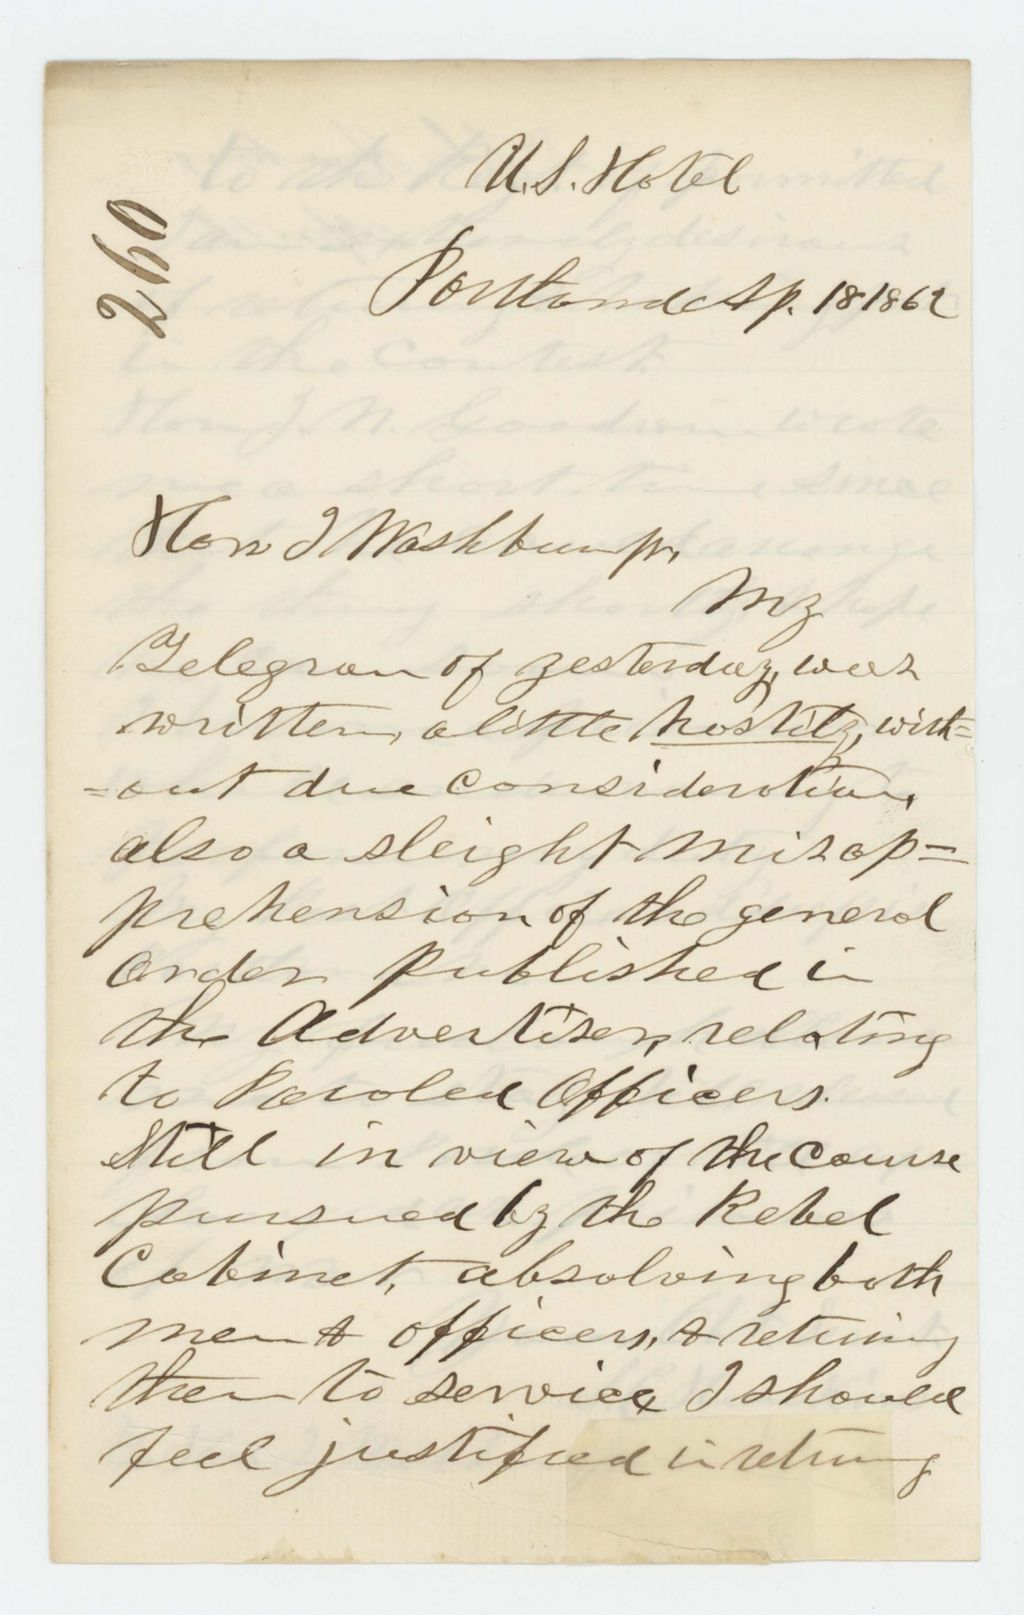 260
U.S. Hotel
Portland Ap. 18 1862
Hon I Washburn jr,
My
Telegram of yesterday, was
written, a little hostily, with=
=out due consideration,
also a sleight misap=
prehension of the general
Order published in
the Advertiser, relating
to Paroled Officers.
Still in view of the course
pursued by the Rebel
Cabinet, absolving both
men & officers, & returing
them to service, I should
feel justified in returing